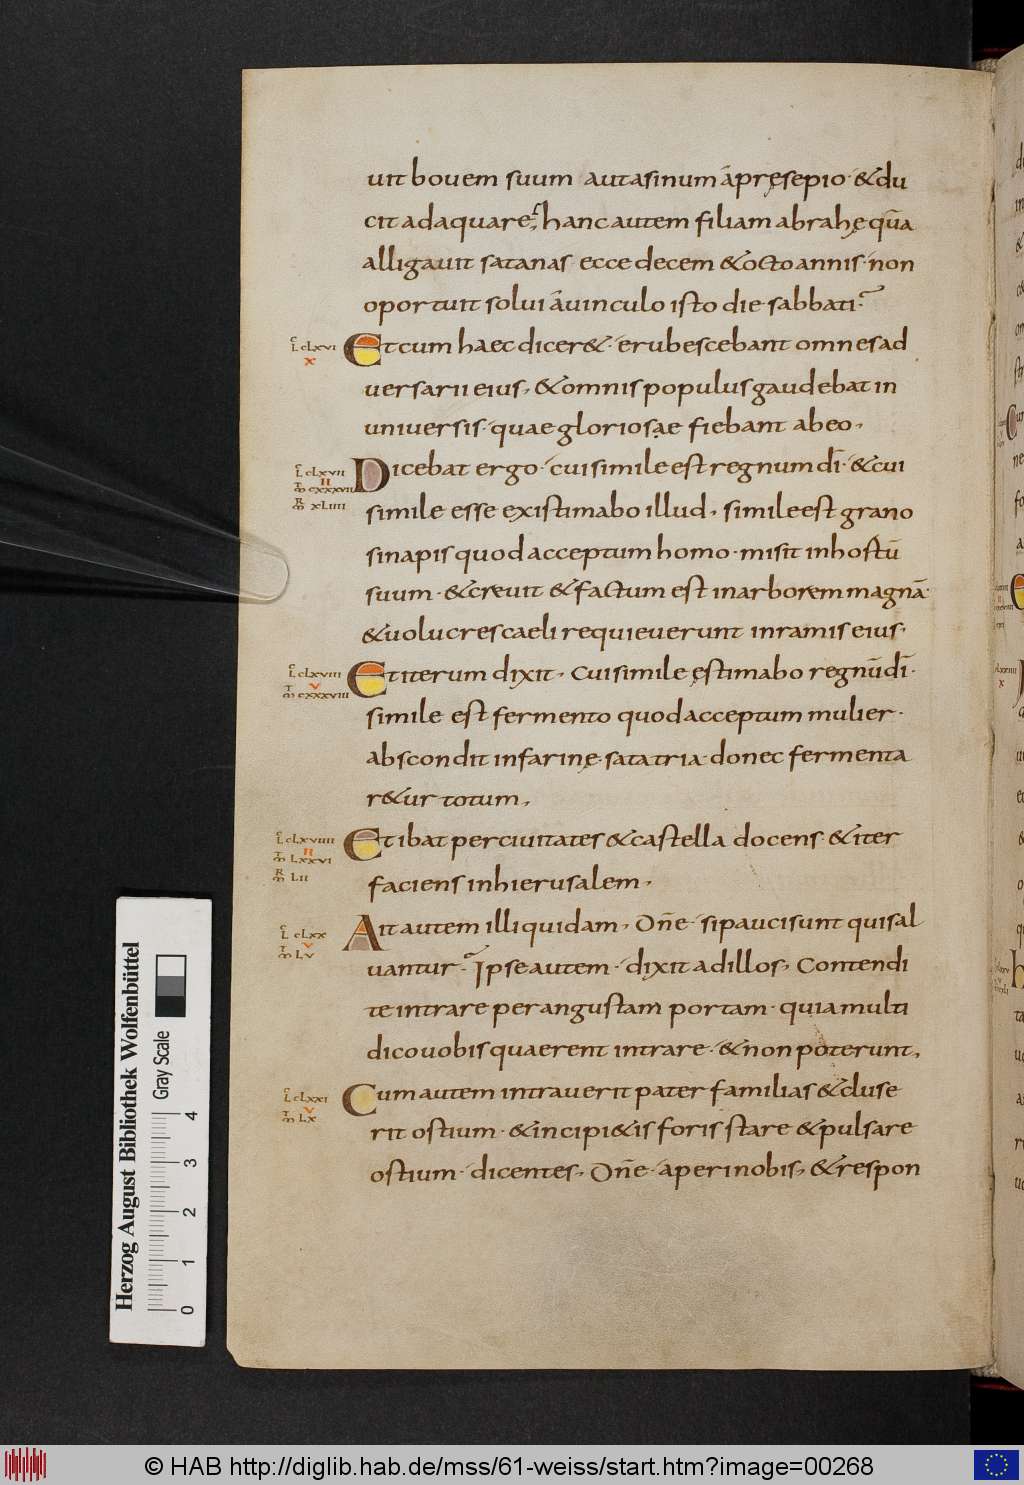 uit bouem suum aut asinum a praesepio · & du
cit adaquare; hanc autem filiam abrahę quā
alligauit satanas ecce decem & octo annis · non
oportuit solui a uinculo isto die sabbati?
L cLxvi
x
Et cum haec dicer& · erubescebant omnes ad
uersarii eius, & omnis populus gaudebat in
uniuersis · quae gloriosae fiebant ab eo,
L cLxvii
II
m cxxxvii
R
m xLiiii
Dicebat ergo · cui simile est regnum dī · & cui
simile esse existimabo illud, simile est grano
sinapis quod acceptum homo · misit in hostū
suum · & creuit & factum est in arborem magnā ·
& uolucres caeli requieuerunt in ramis eius ·
L cLxviii
v
m cxxxviii
Et iterum dixit, Cui simile ęstimabo regnū dī ·
simile est fermento quod acceptum mulier ·
abscondit in farinę · sata tria · donec fermenta
r&ur totum,
L cLxviiii
II
m Lxxvi
R
m Lii
Et ibat per ciuitates & castella docens · & iter
faciens in hierusalem,
L cLxx
v
m Lv
Ait autem illi quidam, Dn̄e · si pauci sunt qui sal
uantur? Ipse autem · dixit ad illos, Contendi
te intrare per angustam portam · quia multi
dico uobis quaerent intrare · & non poterunt,
L cLxxi
v
m Lx
Cum autem intrauerit pater familias & cluse
rit ostium · & incipi&is foris stare & pulsare
ostium · dicentes, Dn̄e · aperi nobis, & respon
Herzog August Bibliothek Wolfenbüttel
Gray Scale
0 1 2 3 4
© HAB http://diglib.hab.de/mss/61-weiss/start.htm?image=00268